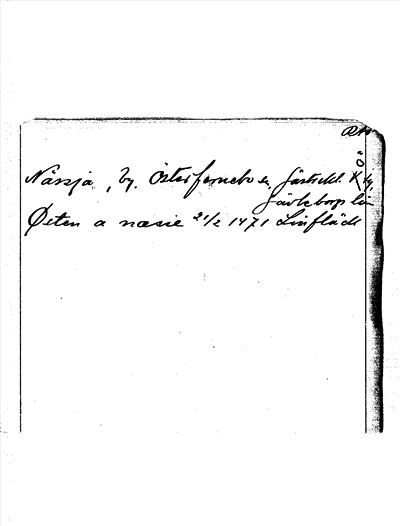 RA
Ö
Närsjä, by, Österfernebo sn, Gästrikl. K by,
Gävleborgs län
Østen a næsie 21/2 1471 Linflädt